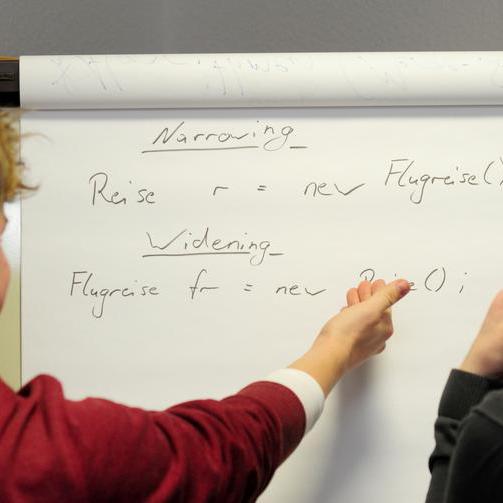 Narrowing
Reise r = new Flugreise()
Widening
Flugreise fr = new Reise();